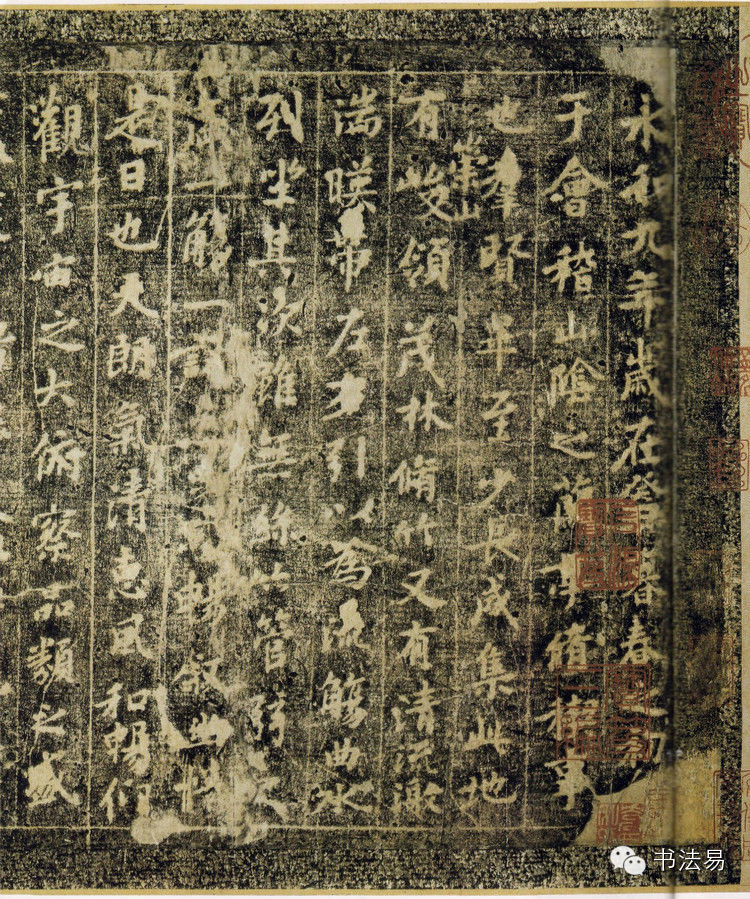 永和九年歲在癸暮春之初
于會稽山陰之蘭亭脩稧事
也羣賢畢至少長咸集此地
有崇山峻領茂林脩竹又有清流激
湍暎帶左右引以為流觴曲水
列坐其次雖無絲竹管弦之
盛一觴一詠暢敘幽情
是日也天朗氣清惠風和暢仰
觀宇宙之大俯察品類之盛
书法易